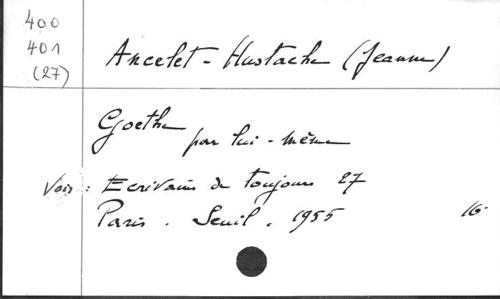 400
401
(27)
Ancelet-Hustache (Jeanne)
Goethe
par lui-même
Voir : Ecrivains de toujours 27
Paris. Seuil. 1955 16